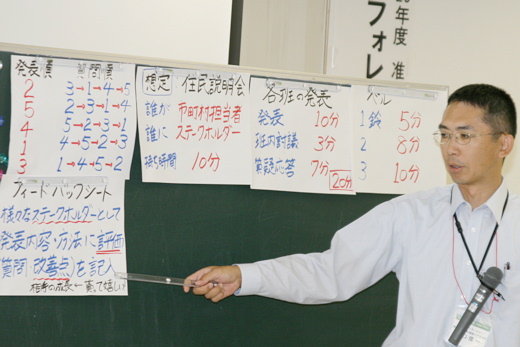 年度 准
フォレ
発表順 質問順
2 3→1→4→5
5 2→3→1→4
4 5→2→3→1
1 4→5→2→3
3 1→4→5→2
フィードバックシート
様々なステークホルダーとして
発表内容・方法に評価
質問(改善点)を記入
相手の成長←貰って嬉しい
想定 住民説明会
誰が 市町村担当者
誰に ステークホルダー
持ち時間 10分
各班の発表
発表 10分
班内討議 3分
質疑応答 7分
20分
ベル
1鈴 5分
2 8分
3 10分